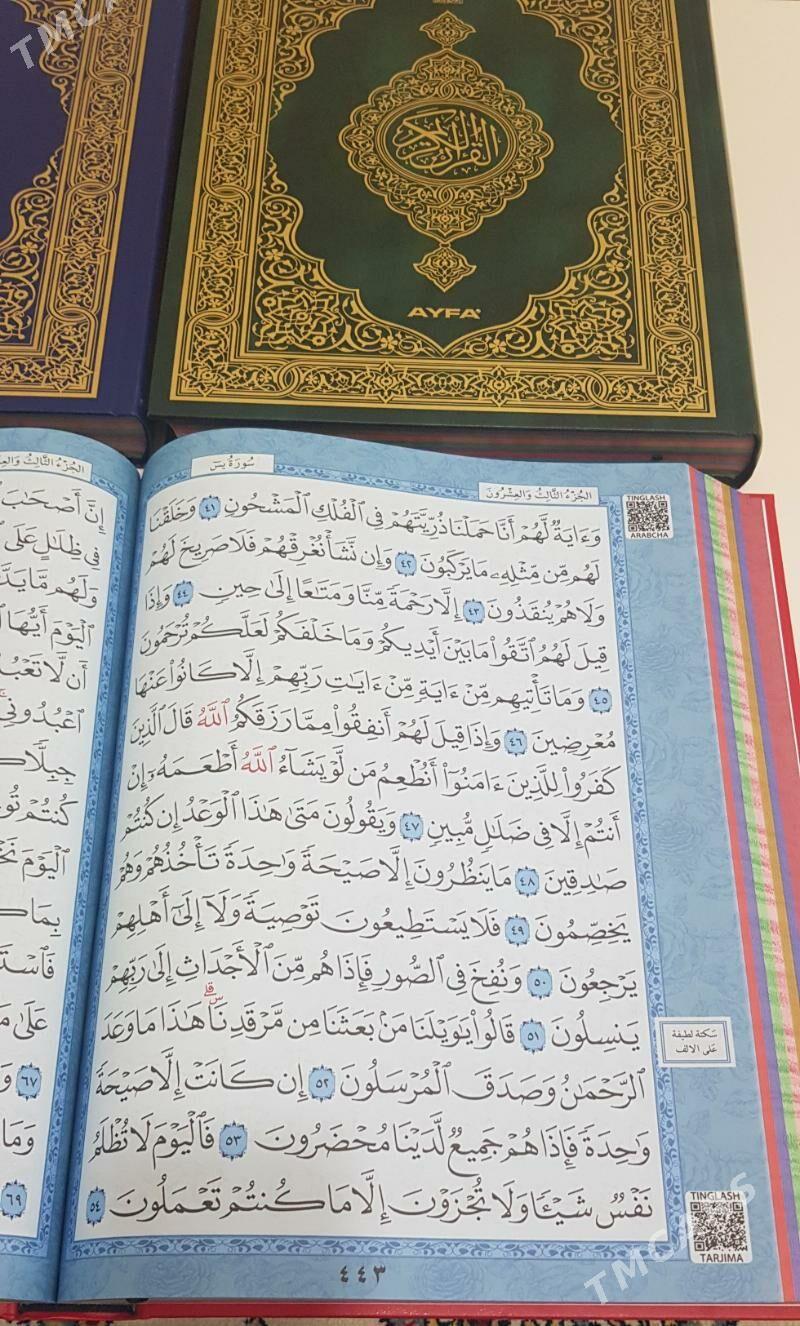 TMCARS
القرآن الكريم
AYFA
سُورَةُ يسٓ
الجُزْءُ الثَّالِثُ وَالعِشْرُونَ
TINGLASH
ARABCHA
وَءَايَةٌ لَّهُمْ أَنَّا حَمَلْنَا ذُرِّيَّتَهُمْ فِي الْفُلْكِ الْمَشْحُونِ ٤١ وَخَلَقْنَا
لَهُم مِّن مِّثْلِهِۦ مَا يَرْكَبُونَ ٤٢ وَإِن نَّشَأْ نُغْرِقْهُمْ فَلَا صَرِيخَ لَهُمْ
وَلَا هُمْ يُنقَذُونَ ٤٣ إِلَّا رَحْمَةً مِّنَّا وَمَتَٰعًا إِلَىٰ حِينٍ ٤٤ وَإِذَا
قِيلَ لَهُمُ ٱتَّقُوا۟ مَا بَيْنَ أَيْدِيكُمْ وَمَا خَلْفَكُمْ لَعَلَّكُمْ تُرْحَمُونَ
٤٥ وَمَا تَأْتِيهِم مِّنْ ءَايَةٍ مِّنْ ءَايَٰتِ رَبِّهِمْ إِلَّا كَانُوا۟ عَنْهَا
مُعْرِضِينَ ٤٦ وَإِذَا قِيلَ لَهُمْ أَنفِقُوا۟ مِمَّا رَزَقَكُمُ ٱللَّهُ قَالَ ٱلَّذِينَ
كَفَرُوا۟ لِلَّذِينَ ءَامَنُوٓا۟ أَنُطْعِمُ مَن لَّوْ يَشَآءُ ٱللَّهُ أَطْعَمَهُۥٓ إِنْ
أَنتُمْ إِلَّا فِي ضَلَٰلٍ مُّبِينٍ ٤٧ وَيَقُولُونَ مَتَىٰ هَٰذَا ٱلْوَعْدُ إِن كُنتُمْ
صَٰدِقِينَ ٤٨ مَا يَنظُرُونَ إِلَّا صَيْحَةً وَٰحِدَةً تَأْخُذُهُمْ وَهُمْ
يَخِصِّمُونَ ٤٩ فَلَا يَسْتَطِيعُونَ تَوْصِيَةً وَلَآ إِلَىٰٓ أَهْلِهِمْ
يَرْجِعُونَ ٥٠ وَنُفِخَ فِي ٱلصُّورِ فَإِذَا هُم مِّنَ ٱلْأَجْدَاثِ إِلَىٰ رَبِّهِمْ
يَنسِلُونَ ٥١ قَالُوا۟ يَٰوَيْلَنَا مَنۢ بَعَثَنَا مِن مَّرْقَدِنَا ۜ ۗ هَٰذَا مَا وَعَدَ
ٱلرَّحْمَٰنُ وَصَدَقَ ٱلْمُرْسَلُونَ ٥٢ إِن كَانَتْ إِلَّا صَيْحَةً
وَٰحِدَةً فَإِذَا هُمْ جَمِيعٌ لَّدَيْنَا مُحْضَرُونَ ٥٣ فَٱلْيَوْمَ لَا تُظْلَمُ
نَفْسٌ شَيْـًٔا وَلَا تُجْزَوْنَ إِلَّا مَا كُنتُمْ تَعْمَلُونَ ٥٤
سكتة لطيفة
على الالف
TINGLASH
TARJIMA
٤٤٣
الجُزْءُ الثَّالِثُ
إِنَّ أَصْحَٰبَ
فِي ظِلَٰلٍ عَلَى
وَلَهُم مَّا
ٱلْيَوْمَ أَيُّهَا
أَن لَّا
ٱعْبُدُونِي
جِبِلًّا
كُنتُمْ
ٱلْيَوْمَ
بِمَا
عَلَىٰ
٦٧
وَمَا
٦٩
TMCARS